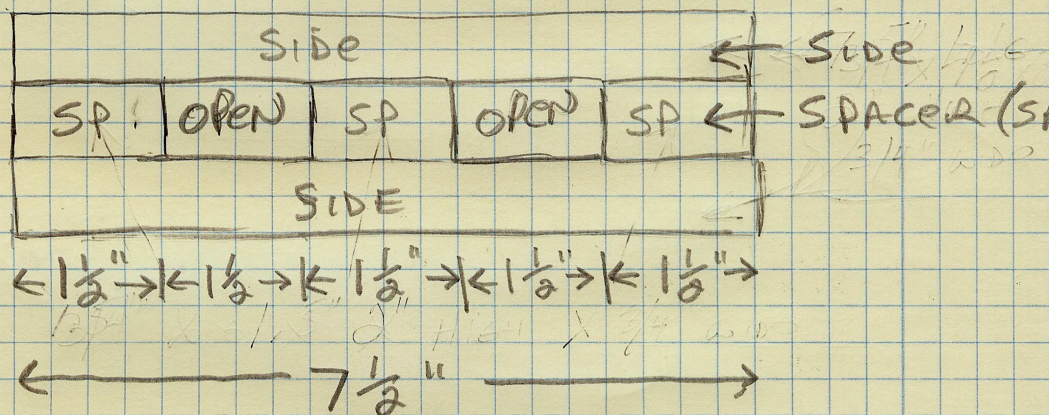 SIDE ← SIDE
SP OPEN SP OPEN SP ← SPACER (SP
SIDE
←1 1/2"→|←1 1/2→|←1 1/2"→|←1 1/2"→|←1 1/2"→
← 7 1/2" →